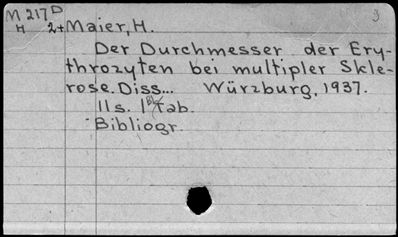 M 217D 9
H 2+ Maier, H.
Der Durchmesser der Ery-
throzyten bei multipler Skle-
rose. Diss... Würzburg, 1937.
11s. 1 Tab.
Bibliogr.